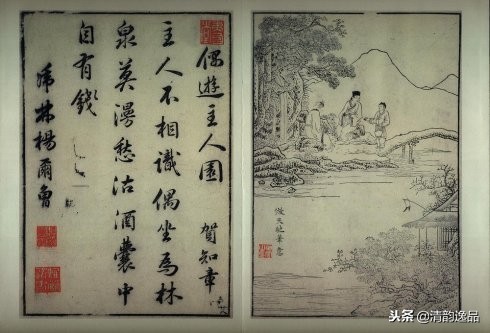 偶遊主人園 賀知章
主人不相識偶坐為林
泉莫漫愁沽酒囊中
自有錢
虎林楊爾曾
筆意
头条 @清韵逸品